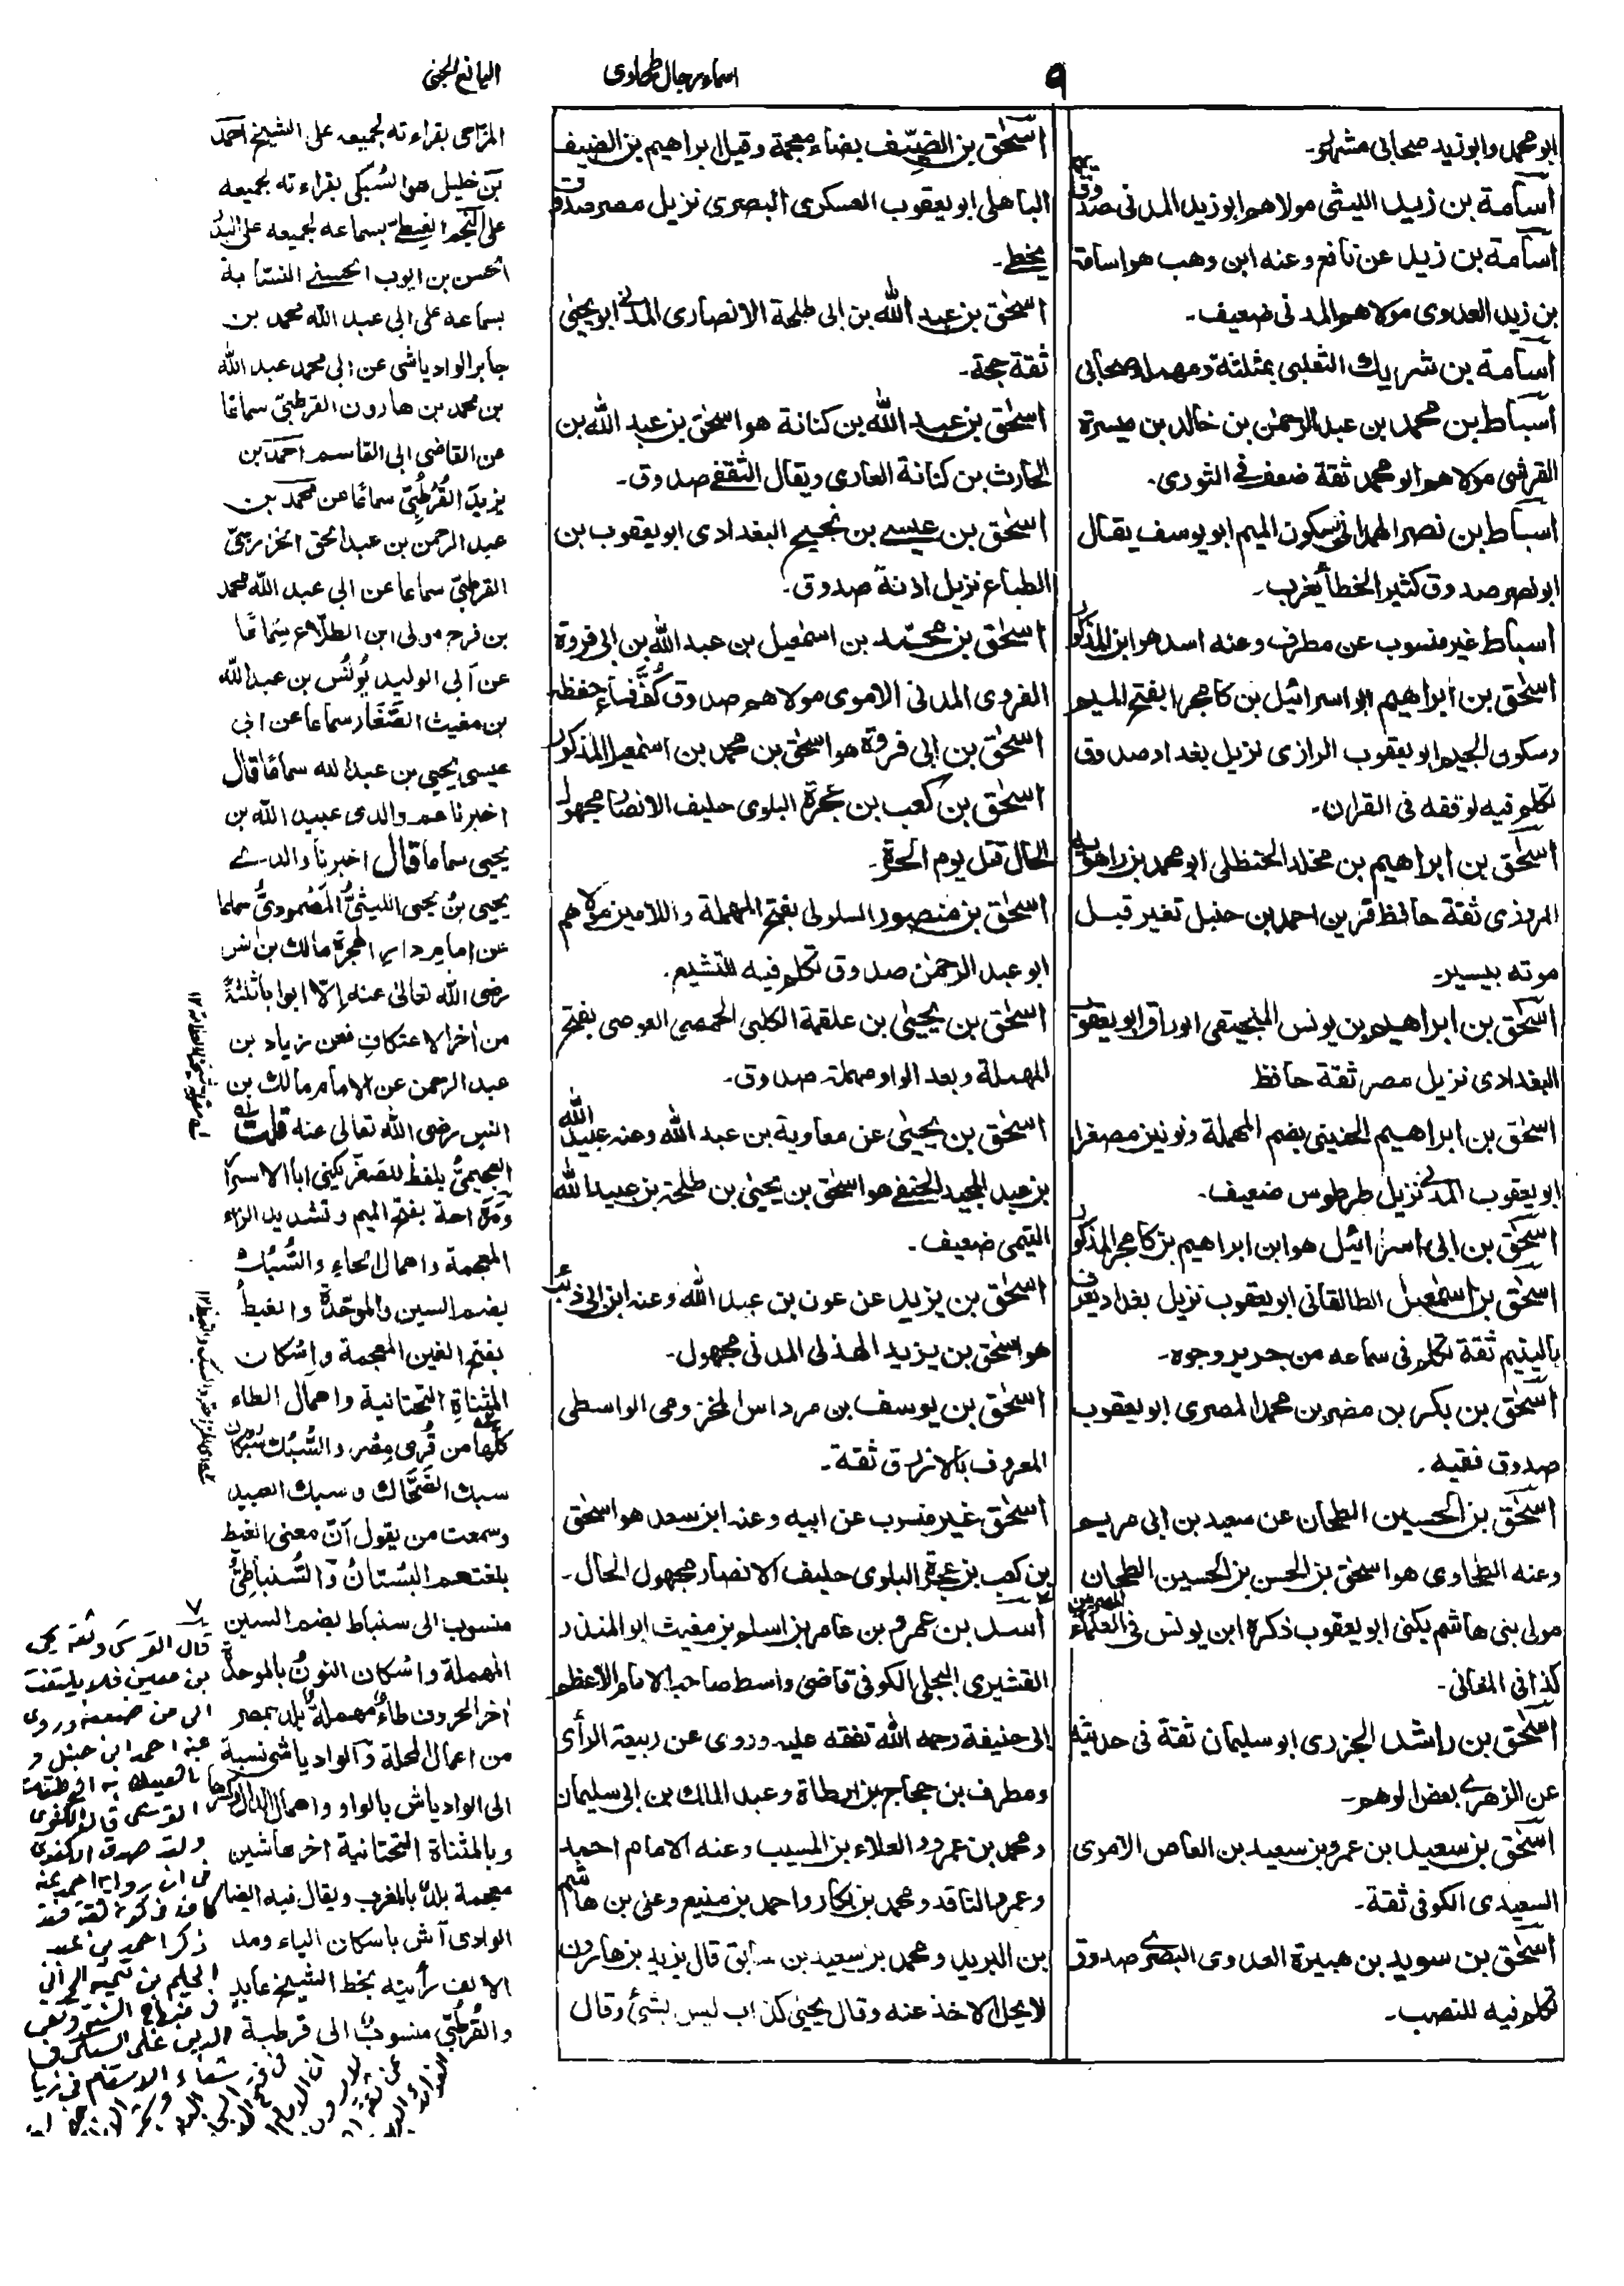 ٩
اسماء رجال طحاوى
اليانع الجنى
ابو محمد وابو زيد صحابى مشهور۔
اسامة بن زيد الليثى مولاهم ابو زيد المدنى صدوق يهم
اسامة بن زيد عن نافع وعنه ابن وهب هو اسامة
بن زيد العدوى مولاهم المدنى ضعيف۔
اسامة بن شريك الثعلبى بمثلثة ومهملة صحابى
اسباط بن محمد بن عبد الرحمٰن بن خالد بن ميسرة
القرشى مولاهم ابو محمد ثقة ضعف فى الثورى۔
اسباط بن نصر الهمدانى بسكون الميم ابو يوسف يقال
ابو نصر صدوق كثير الخطأ يغرب۔
اسباط غير منسوب عن مطرف وعنه اسد هو ابن المذكور
اسحٰق بن ابراهيم ابو اسرائيل بن كامجرا بفتح الميم
وسكون الجيم ابو يعقوب الرازى نزيل بغداد صدوق
تكلم فيه لوقفه فى القران۔
اسحٰق بن ابراهيم بن مخلد الحنظلى ابو محمد بن راهويه
المروزى ثقة حافظ قرين احمد بن حنبل تغير قبل
موته بيسير۔
اسحٰق بن ابراهيم بن يونس المنجنيقى الوراق ابو يعقوب
البغدادى نزيل مصر ثقة حافظ
اسحٰق بن ابراهيم الحنينى بضم المهملة ونونين مصغرا
ابو يعقوب المدنى نزيل طرطوس ضعيف۔
اسحٰق بن ابى اسرائيل هو ابن ابراهيم بن كامجر المذكور
اسحٰق بن اسمٰعيل الطالقانى ابو يعقوب نزيل بغداد يعرف
باليتيم ثقة تكلم فى سماعه من جرير وجوه۔
اسحٰق بن بكر بن مضر بن محمد المصرى ابو يعقوب
صدوق فقيه۔
اسحٰق بن الحسين الطحان عن سعيد بن ابى مريم
وعنه الطحاوى هو اسحٰق بن الحسن بن الحسين الطحان
مولى بنى هاشم يكنى ابو يعقوب ذكره ابن يونس فى العلماء المصريين
كذا فى المغانى۔
اسحٰق بن راشد الجزرى ابو سليمان ثقة فى حديثه
عن الزهرى بعض الوهم۔
اسحٰق بن سعيد بن عمرو بن سعيد بن العاص الاموى
السعيدى الكوفى ثقة۔
اسحٰق بن سويد بن هبيرة العدوى البصرى صدوق
تكلم فيه للنصب۔
اسحٰق بن الضيف بضاء معجمة وقيل ابراهيم بن الضيف
الباهلى ابو يعقوب العسكرى البصرى نزيل مصر صدوق
يخطى۔
اسحٰق بن عبد الله بن ابى طلحة الانصارى المدنى ابو يحيٰى
ثقة حجة۔
اسحٰق بن عبد الله بن كنانة هو اسحٰق بن عبد الله بن
الحارث بن كنانة العامرى ويقال الثقفى صدوق۔
اسحٰق بن عيسى بن نجيح البغدادى ابو يعقوب بن
الطباع نزيل اذنة صدوق۔
اسحٰق بن محمد بن اسمٰعيل بن عبد الله بن ابى فروة
الفروى المدنى الاموى مولاهم صدوق كف فساء حفظه
اسحٰق بن ابى فروة هو اسحٰق بن محمد بن اسمٰعيل المذكور
اسحٰق بن كعب بن عجرة البلوى حليف الانصار مجهول
الحال قتل يوم الحرة۔
اسحٰق بن منصور السلولى بفتح المهملة واللامين مولاهم
ابو عبد الرحمٰن صدوق تكلم فيه للتشيع۔
اسحٰق بن يحيٰى بن علقمة الكلبى الحمصى العوصى بفتح
المهملة وبعد الواو مهملة صدوق۔
اسحٰق بن يحيٰى عن معاوية بن عبد الله وعنه عبيد الله
بن عبد المجيد الحنفى هو اسحٰق بن يحيٰى بن طلحة بن عبيد الله
التيمى ضعيف۔
اسحٰق بن يزيد عن عون بن عبد الله وعنه ابن ابى ذئب
هو اسحٰق بن يزيد الهذلى المدنى مجهول۔
اسحٰق بن يوسف بن مرداس المخزومى الواسطى
المعروف بالازرق ثقة۔
اسحٰق غير منسوب عن ابيه وعنه ابن سعد هو اسحٰق
بن كعب بن عجرة البلوى حليف الانصار مجهول الحال۔
اسد بن عمرو بن عامر بن اسلم بن مغيث ابو المنذر
القشيرى البجلى الكوفى قاضى واسط صاحب الامام الاعظم
ابى حنيفة رحمه الله تفقه عليه وروى عن ربيعة الرأى
ومطرف بن حجاج بن ارطاة وعبد الملك بن ابى سليمان
ومحمد بن عمرو والعلاء بن المسيب وعنه الامام احمد
وعمرو الناقد ومحمد بن بكار واحمد بن منيع وعلى بن هاشم
بن البريد ومحمد بن سعيد بن سابق قال يزيد بن هارون
لا يحل الاخذ عنه وقال يحيٰى كذاب ليس بشئ وقال
المزاحى بقراءته لجميعه على الشيخ احمد
بن خليل هو السبكى بقراءته لجميعه
على النجم الغيطى بسماعه لجميعه على البدر
الحسن بن ايوب الحسينى النسابة
بسماعه على ابى عبد الله محمد بن
جابر الوادياشى عن ابى محمد عبد الله
بن محمد بن هارون القرطبى سماعا
عن القاضى ابى القاسم احمد بن
يزيد القرطبى سماعا عن محمد بن
عبد الرحمن بن عبد الحق الخزرجى
القرطبى سماعا عن ابى عبد الله محمد
بن فرج مولى ابن الطلاع سماعا
عن ابى الوليد يونس بن عبد الله
بن مغيث الصفار سماعا عن ابى
عيسى يحيى بن عبد الله سماعا قال
اخبرنا عم والدى عبيد الله بن
يحيى سماعا قال اخبرنا والدى
يحيى بن يحيى الليثى المصمودى سماعا
عن امام دار الهجرة مالك بن انس
رضى الله تعالى عنه الا ابوابا ثلثة
من اخر الاعتكاف فعن زياد بن
عبد الرحمن عن الامام مالك بن
انس رضى الله تعالى عنه قلت
العجيمى بلفظ المصغر يكنى ابا الاسرار
ومزاحة بفتح الميم وتشديد الزاء
المعجمة واهمال الحاء والسبك
بضم السين والموحدة والغيط
بفتح الغين المعجمة واسكان
المثناة التحتانية واهمال الطاء
كلها من قرى مصر والسبك سبكان
سبك الضحاك وسبك العبيد
وسمعت من يقول ان معنى الغيط
بلغتهم البستان والسنباطى
منسوب الى سنباط بضم السين
المهملة واسكان النون بالموحدة
اخر الحروف طاء مهملة بلد بمصر
من اعمال المحلة والوادياشى نسبة
الى الوادياش بالواو واهمال الدال
وبالمثناة التحتانية اخرها شين
معجمة بلد بالمغرب ويقال فيه ايضا
الوادى آش باسكان الياء ومد
الالف رأيته بخط الشيخ عابد
والقرطبى منسوب الى قرطبة
بن معين فلا يلتفت
الى من ضعفه وروى
عنه احمد ابن حنبل و
ذكر احمد بن عبد
الحليم بن تيمية الحرانى